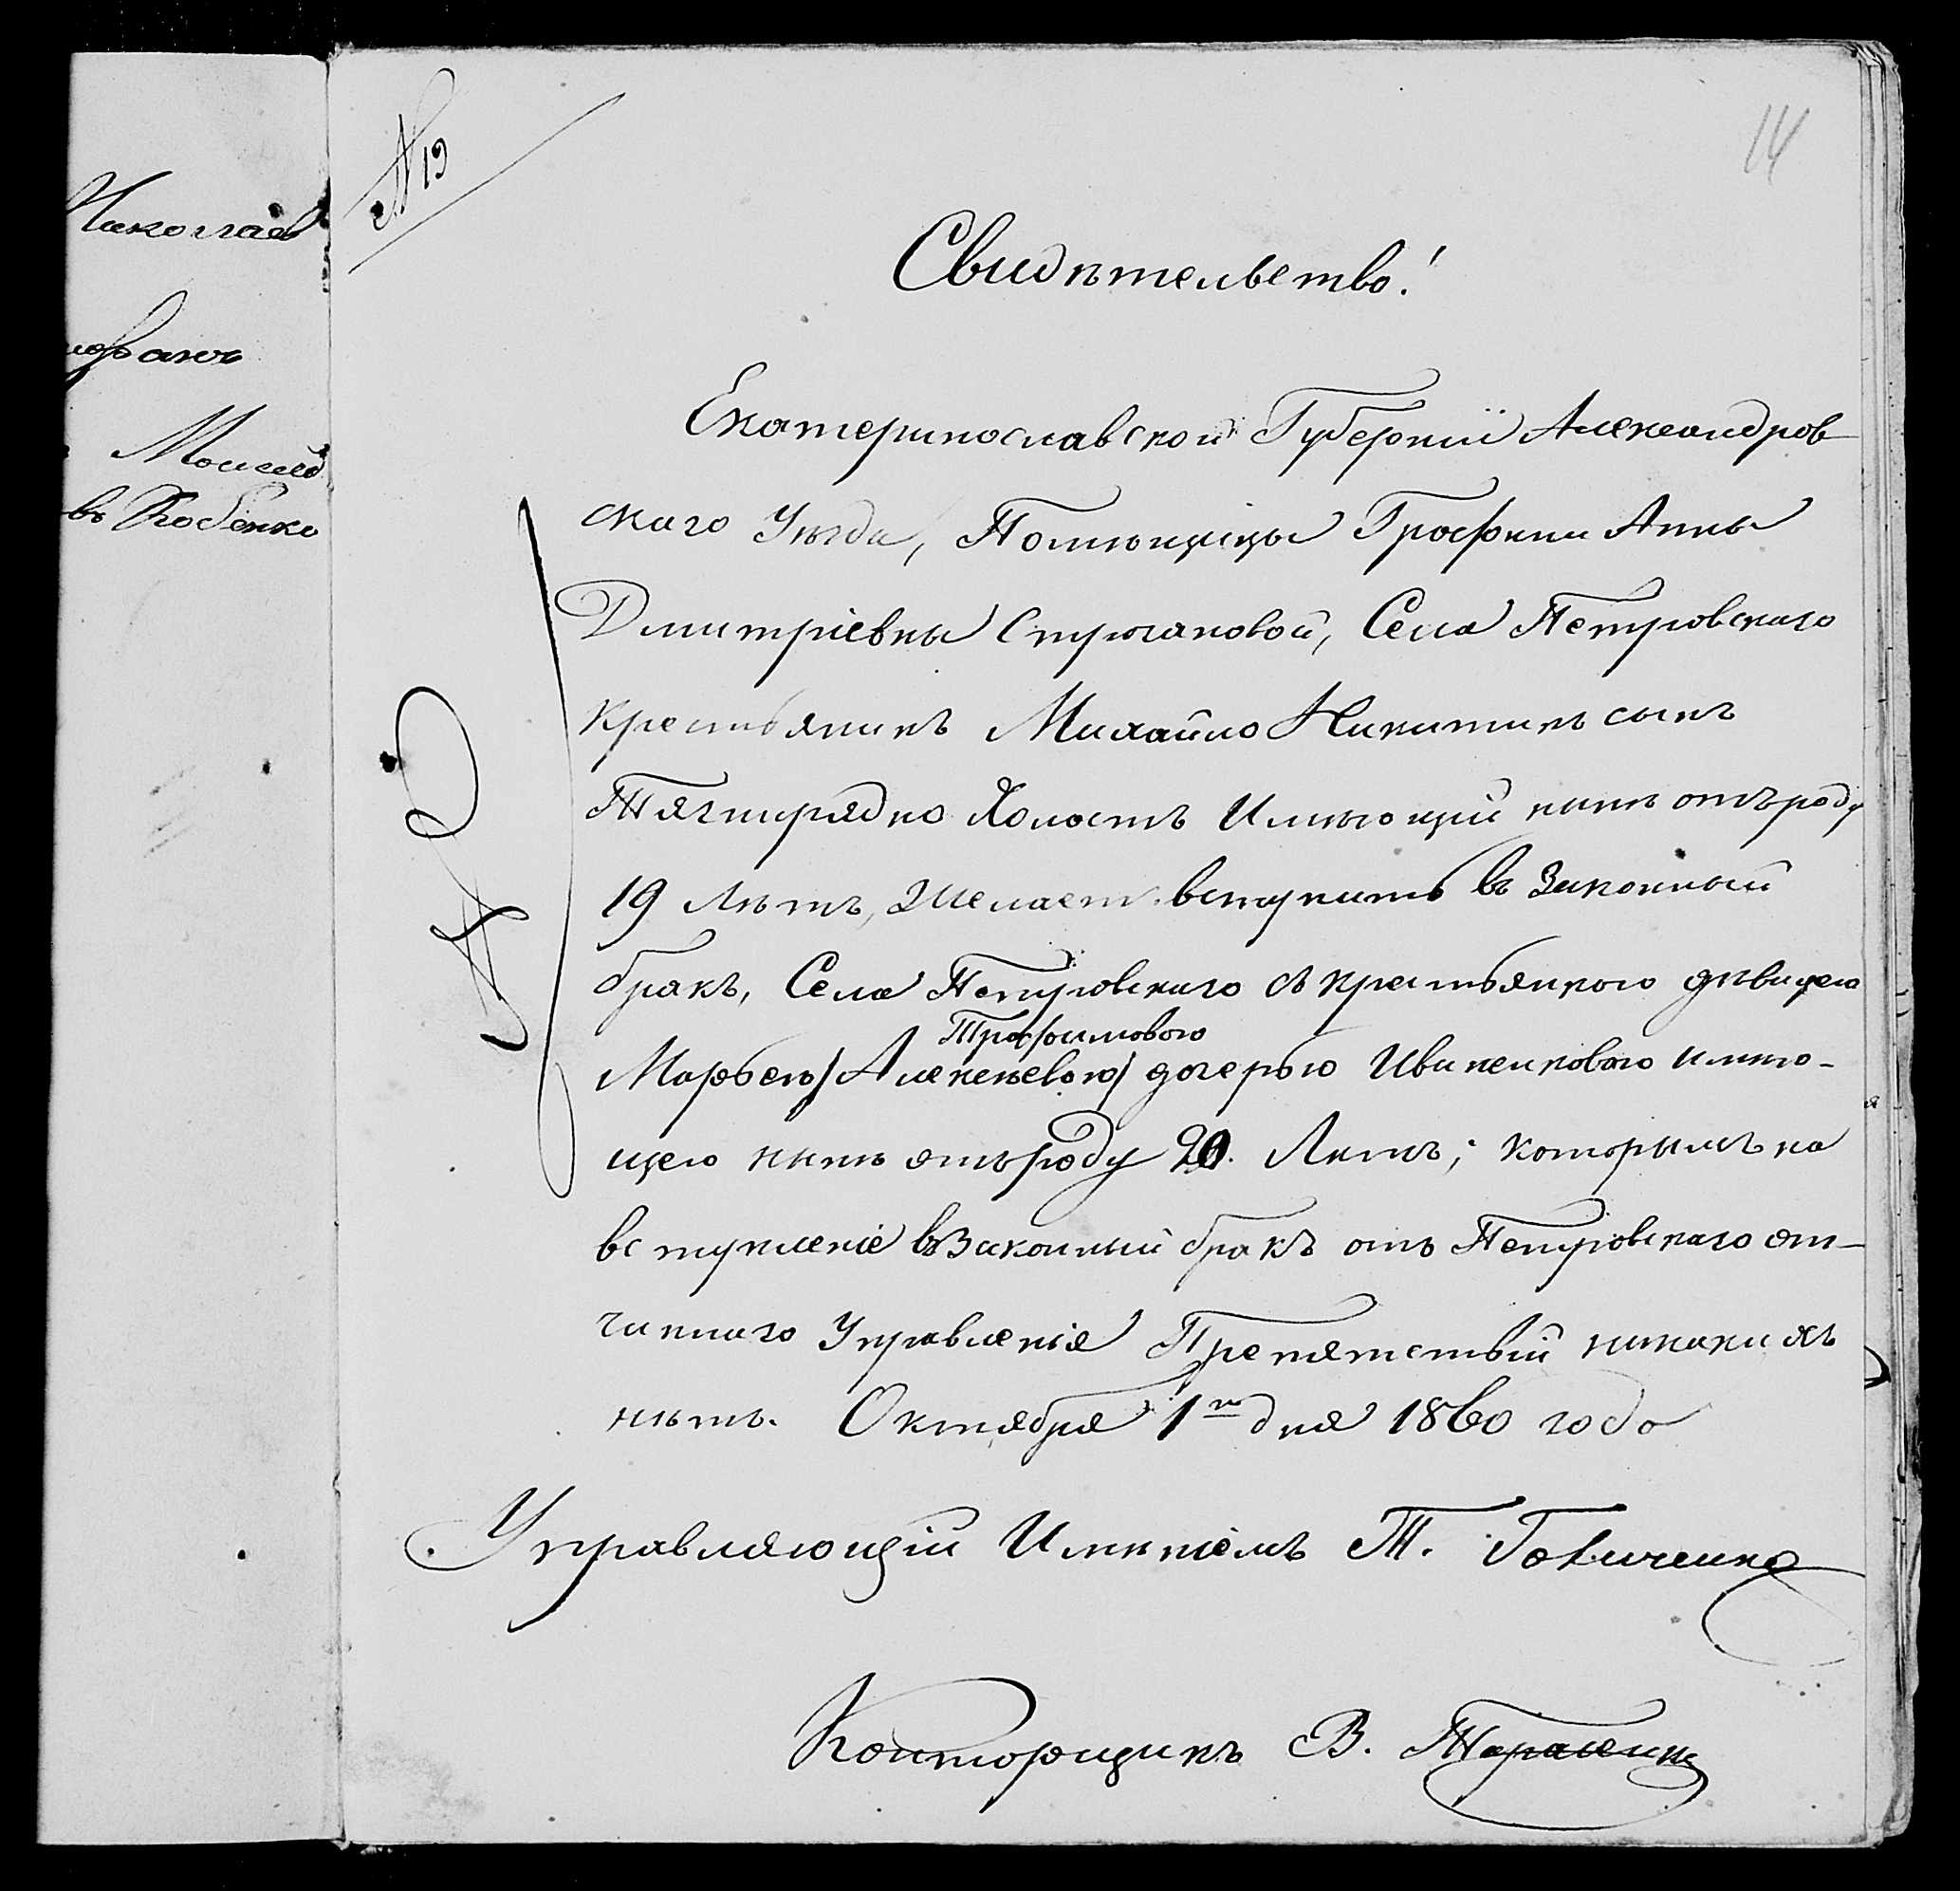 № 13
14
Свидѣтельство!
Екатеринославской Губерніи Александров
скаго Уѣзда, Помѣщицы Графини Анны
Дмитріевны Строгановой, Села Петровскаго
крестьянинъ Михайло Никитинъ сынъ
Холостъ Имѣющій нынѣ отъ роду
19 Лѣтъ, Желаетъ вступить въ Законный
бракъ, Села Петровскаго съ крестьянкою дѣвицею
Трофимовою
Марѳею / Алексѣевою / дочерью Иваненковою имѣю-
щею нынѣ отъ роду 20. Лѣтъ; которымъ на
вступленіе въ Законный бракъ отъ Петровскаго от-
чиннаго Управленія Препятствій никакихъ
нѣтъ. Октября 1го дня 1860 года
Управляющій Имѣніемъ Т.
Конторщикъ В. Тарасенко
Николай
Моисей
въ Кобенко